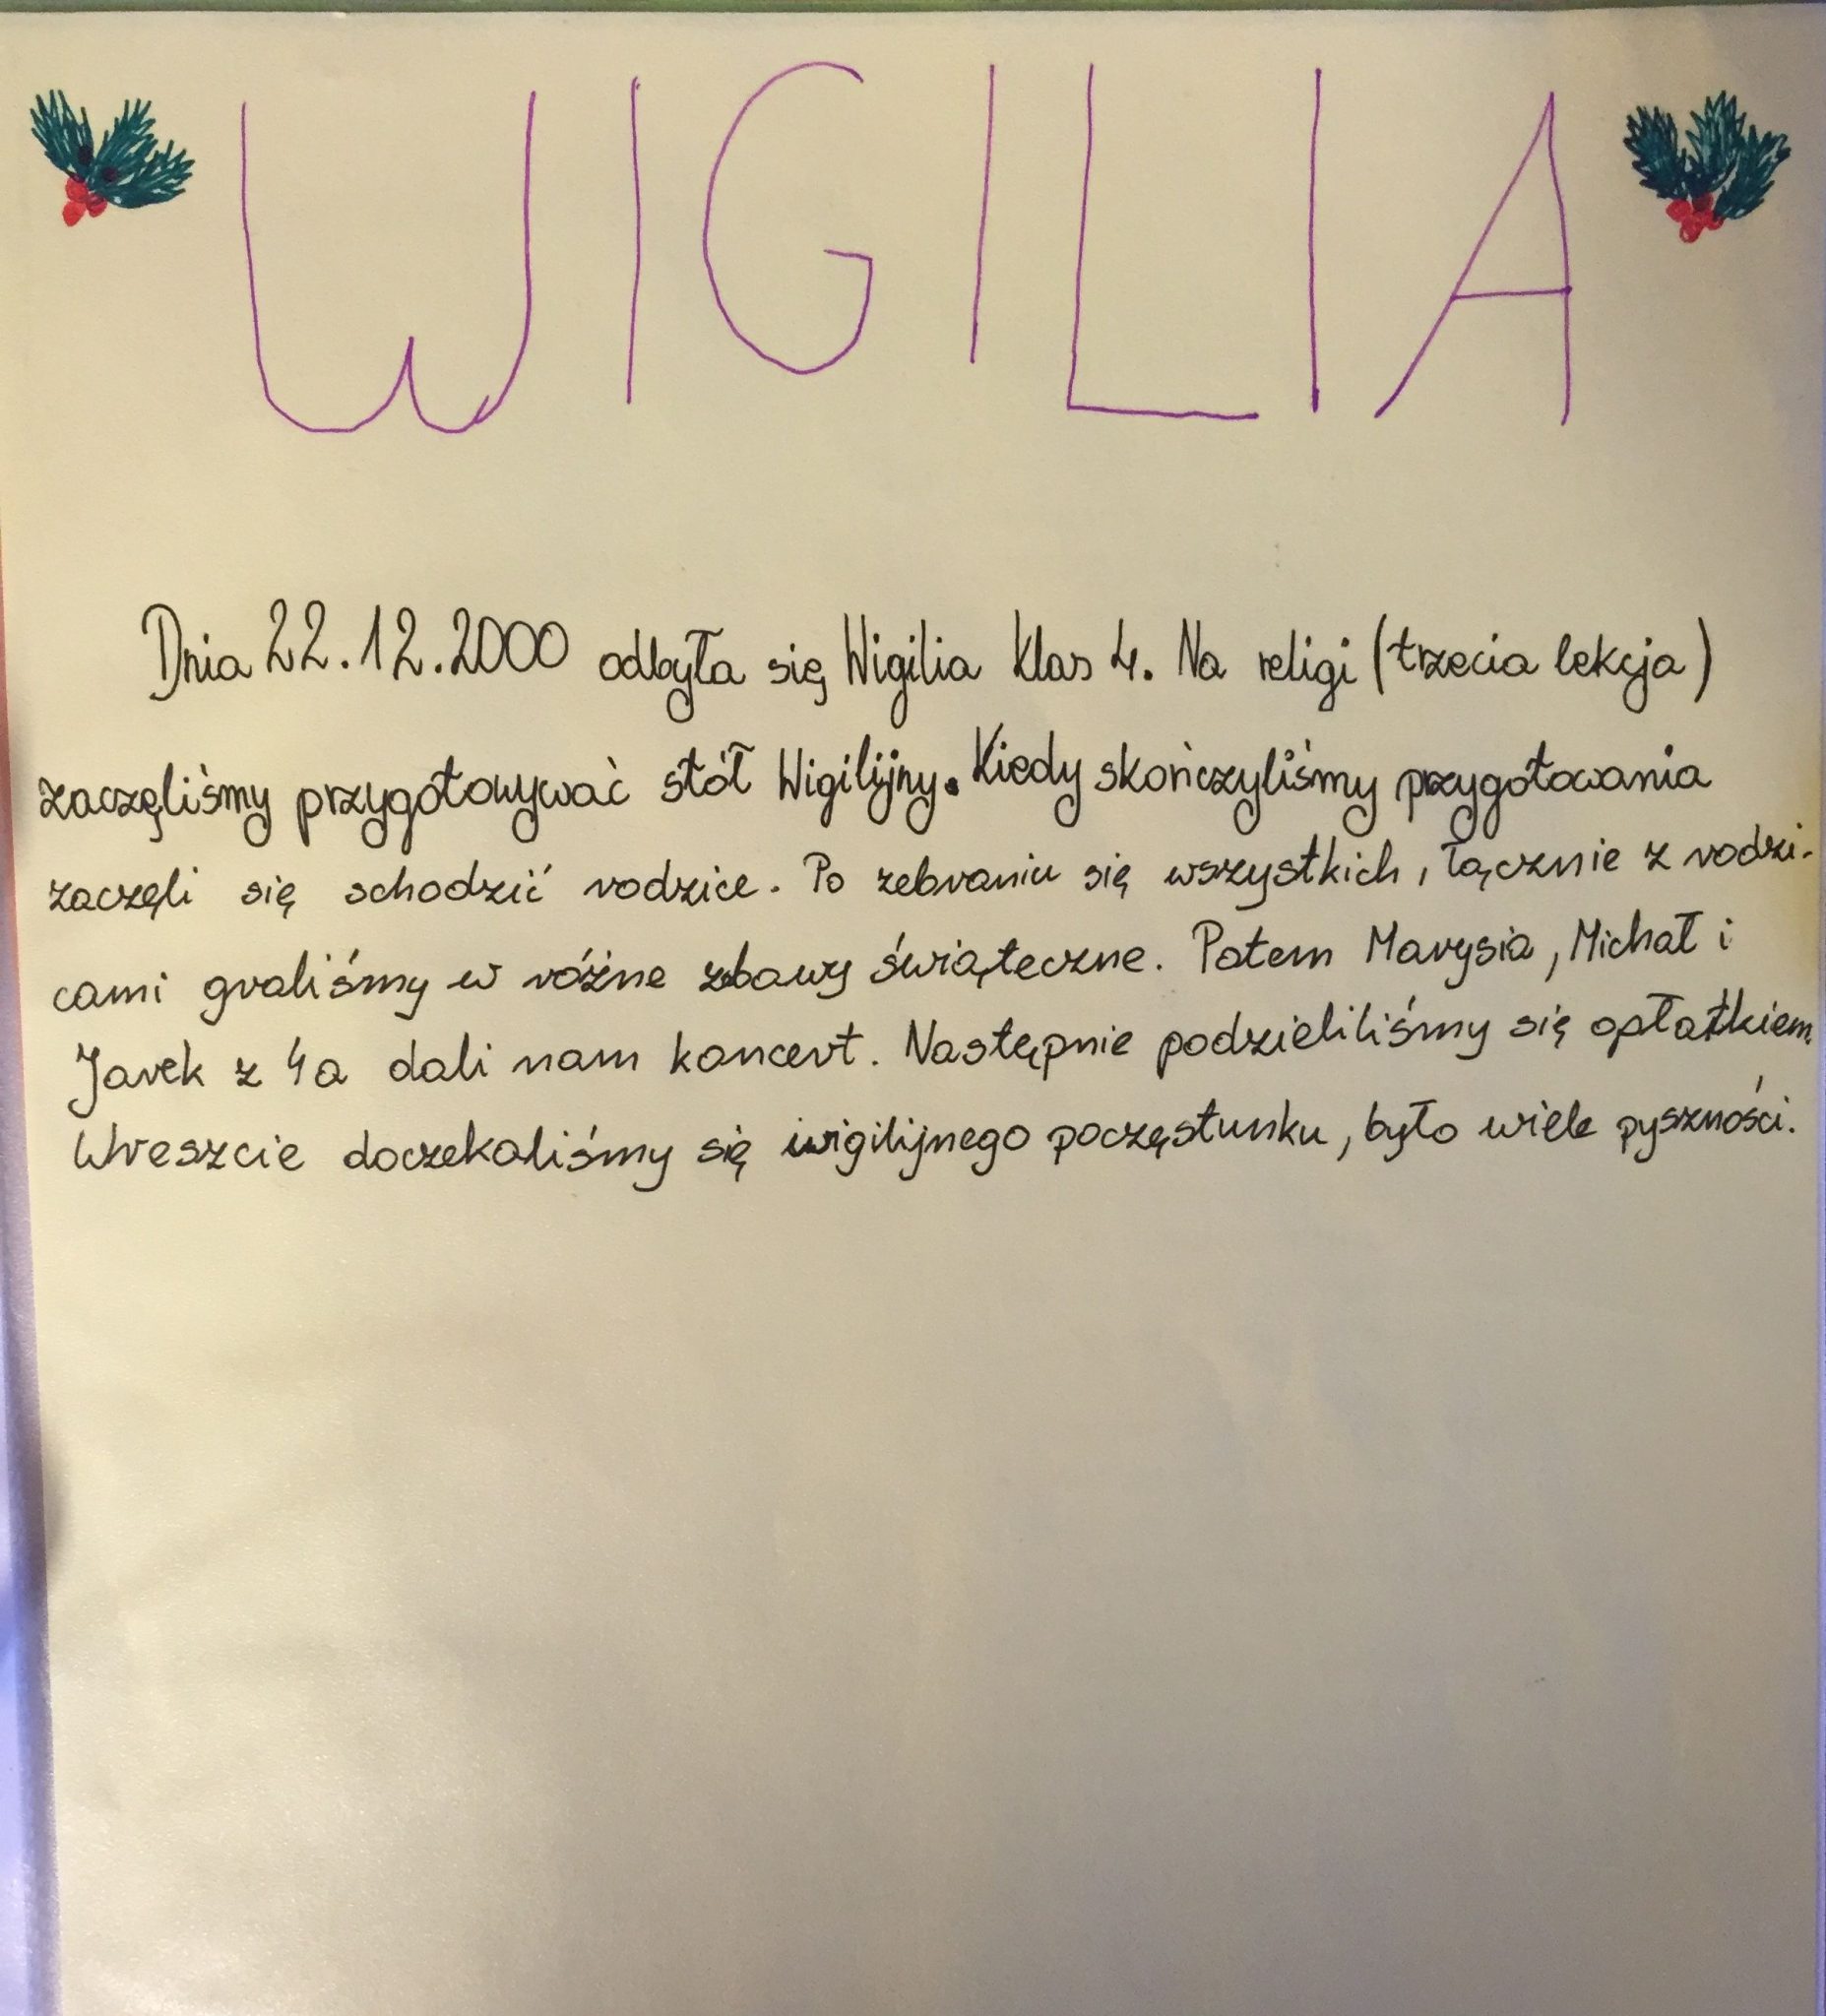 WIGILIA
Dnia 22.12.2000 odbyła się Wigilia klas 4. Na religi (trzecia lekcja)
zaczęliśmy przygotowywać stół Wigilijny. Kiedy skończyliśmy przygotowania
zaczęli się schodzić rodzice. Po zebraniu się wszystkich, łącznie z rodzi-
cami graliśmy w różne zbawy świąteczne. Potem Marysia, Michał i
Jarek z 4a dali nam koncert. Następnie podzieliliśmy się opłatkiem.
Wreszcie doczekaliśmy się wigilijnego poczęstunku, było wiele pyszności.